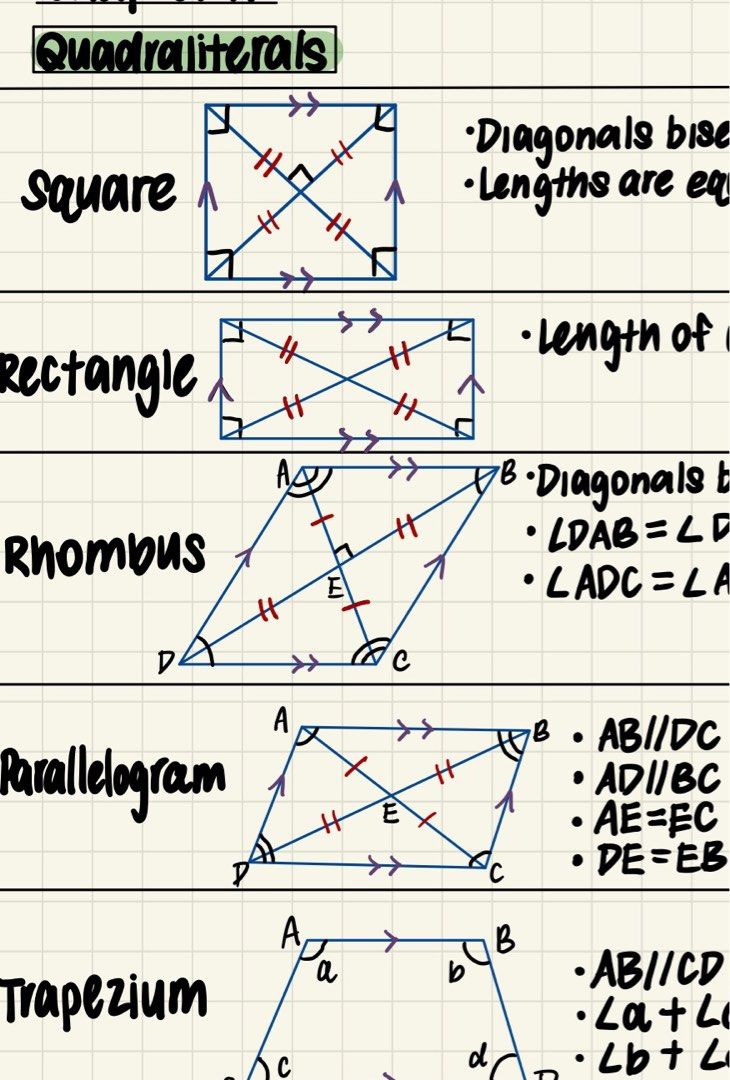 Quadraliterals
Square
•Diagonals
•Lengths are
Rectangle
•Length of
Rhombus
A
B
E
D
C
•Diagonals
•∠DAB = ∠D
•∠ADC = ∠A
Parallelogram
A
B
E
D
C
• AB//DC
• AD//BC
• AE=EC
• DE=EB
Trapezium
A
B
a
b
c
d
•AB//CD
•∠a + ∠
•∠b + ∠